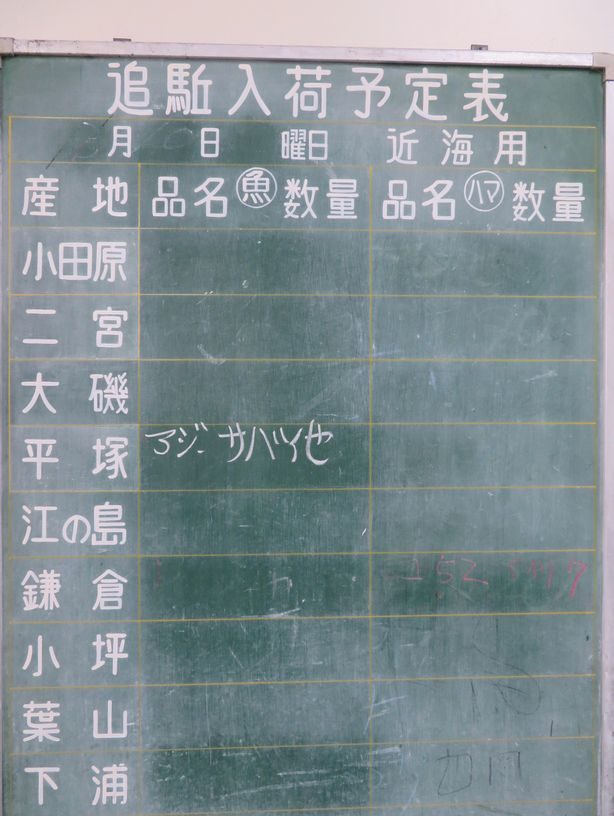 追駈入荷予定表
月 日 曜日 近海用
産地 品名 魚 数量 品名 ハマ 数量
小田原
二宮
大磯
平塚 アジ、サバ、他
江の島
鎌倉
小坪
葉山
下浦